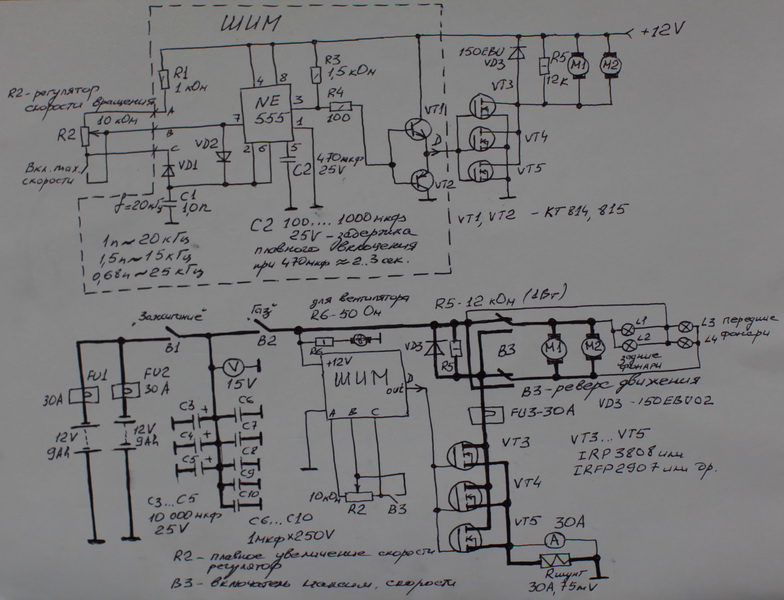 ШИМ
+12V
R1
1 кОм
R3
1,5 кОм
150EBU
VD3
R5
12К
M1
M2
R2-регулятор
скорости вращения
10 кОм
A
R2
B
C
4
8
NE
555
3
7
1
2
6
5
R4
100
VT1
VT2
D
VT3
VT4
VT5
VD2
VD1
Вкл.max.
скорости
C2
470мкф
25V
f=20кГц
C1
1,0п
1п≈20 кГц
1,5п≈15кГц
0,68п≈25кГц
C2 100....1000мкф
25V-задержка
плавного включения
при 470мкф ≈ 2..3 сек.
VT1, VT2 - КТ 814, 815
"Зажигание"
B1
"Газ"
B2
для вентилятора
R6-50 Ом
R6
R5-12 кОм (1Вт)
VD3
R5
B3
M1
M2
L1
L2
L3
L4
передние
фонари
задние
фонари
B3-реверс движения
VD3-150EBU02
FU1
30A
FU2
30A
12V
9Ah
12V
9Ah
V
15V
+12V
ШИМ
out
D
A
B
C
FU3-30A
C3
C4
C5
C6
C7
C8
C9
C10
10кОм
R2
B3
VT3
VT4
VT5
VT3...VT5
IRP3808 или
IRFP2907 или др.
C3...C5
10 000 мкф
25V
C6...C10
1мкф×250V
A
30A
Rшунт
30A, 75mV
R2-плавное увеличение скорости
регулятор
B3-включатель максим. скорости